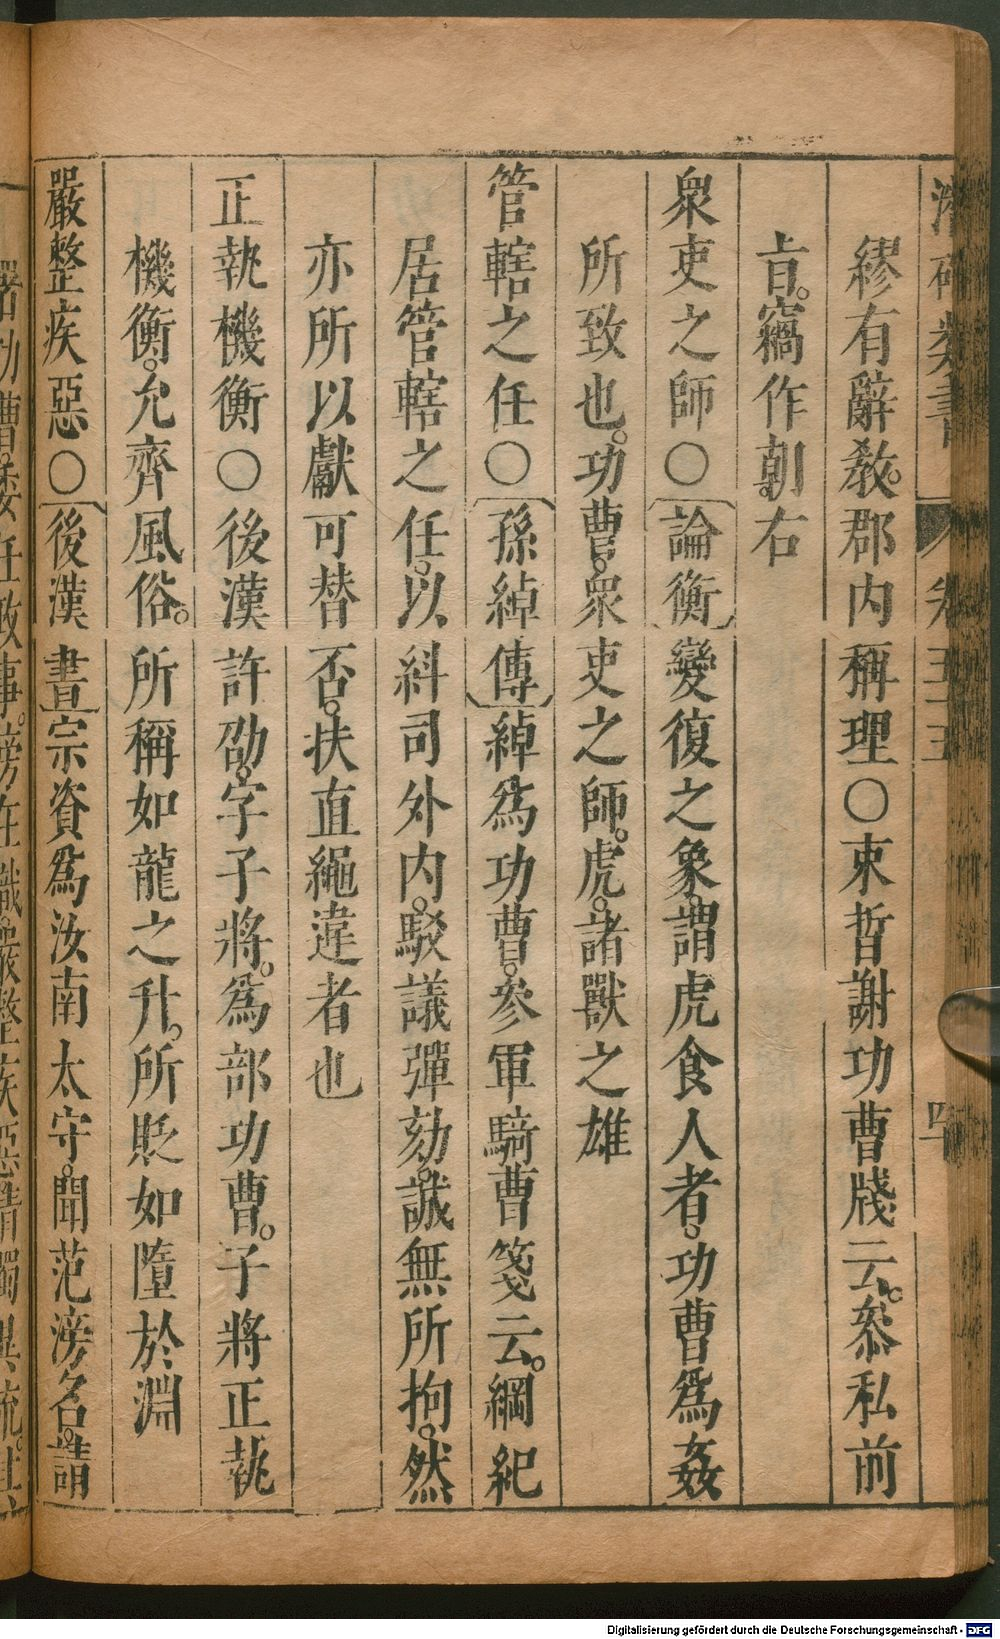 繆有辭教。郡内稱理〇束晳謝功曹牋云。忝私前
旨。竊作朝。右
衆吏之師〇〔論衡〕變復之象。謂虎食人者。功曹爲姦
所致也。功曹。衆吏之師。虎。諸獸之雄
管轄之任〇〔孫綽傳〕綽爲功曹。參軍騎曹箋云。綱紀
居管轄之任。以糾司外内。駁議彈劾。誠無所拘。然
亦所以獻可替否。扶直繩違者也
正執機衡〇後漢許劭。字子將。爲部功曹。子將正執
機衡。允齊風俗。所稱如龍之升。所貶如墮於淵
嚴整疾惡〇〔後漢書〕宗資爲汝南太守。聞范滂名。請
Digitalisierung gefördert durch die Deutsche Forschungsgemeinschaft - DFG